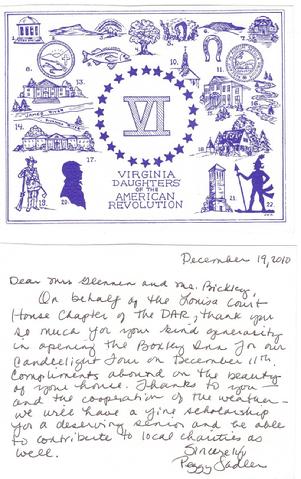 1.
2.
3.
4.
5.
6.
7.
8.
9.
10.
11.
13.
JAMES RIVER
14.
15.
17.
18.
19.
20.
21.
22.
VI
VIRGINIA
DAUGHTERS
OF THE
AMERICAN
REVOLUTION
December 19, 2010
Dear Mrs Glennen and Ms. Brickley,
On behalf of the Louisa Court
House Chapter of the DAR, thank you
so much for your kind generosity
in opening the Boxley Inn for our
Candlelight Tour on December 11th.
Compliments abound on the beauty
of your house. Thanks to you
and the cooperation of the weather -
we will have a fine scholarship
for a deserving senior and be able
to contribute to local charities as
well.
Sincerely,
Peggy Sadler